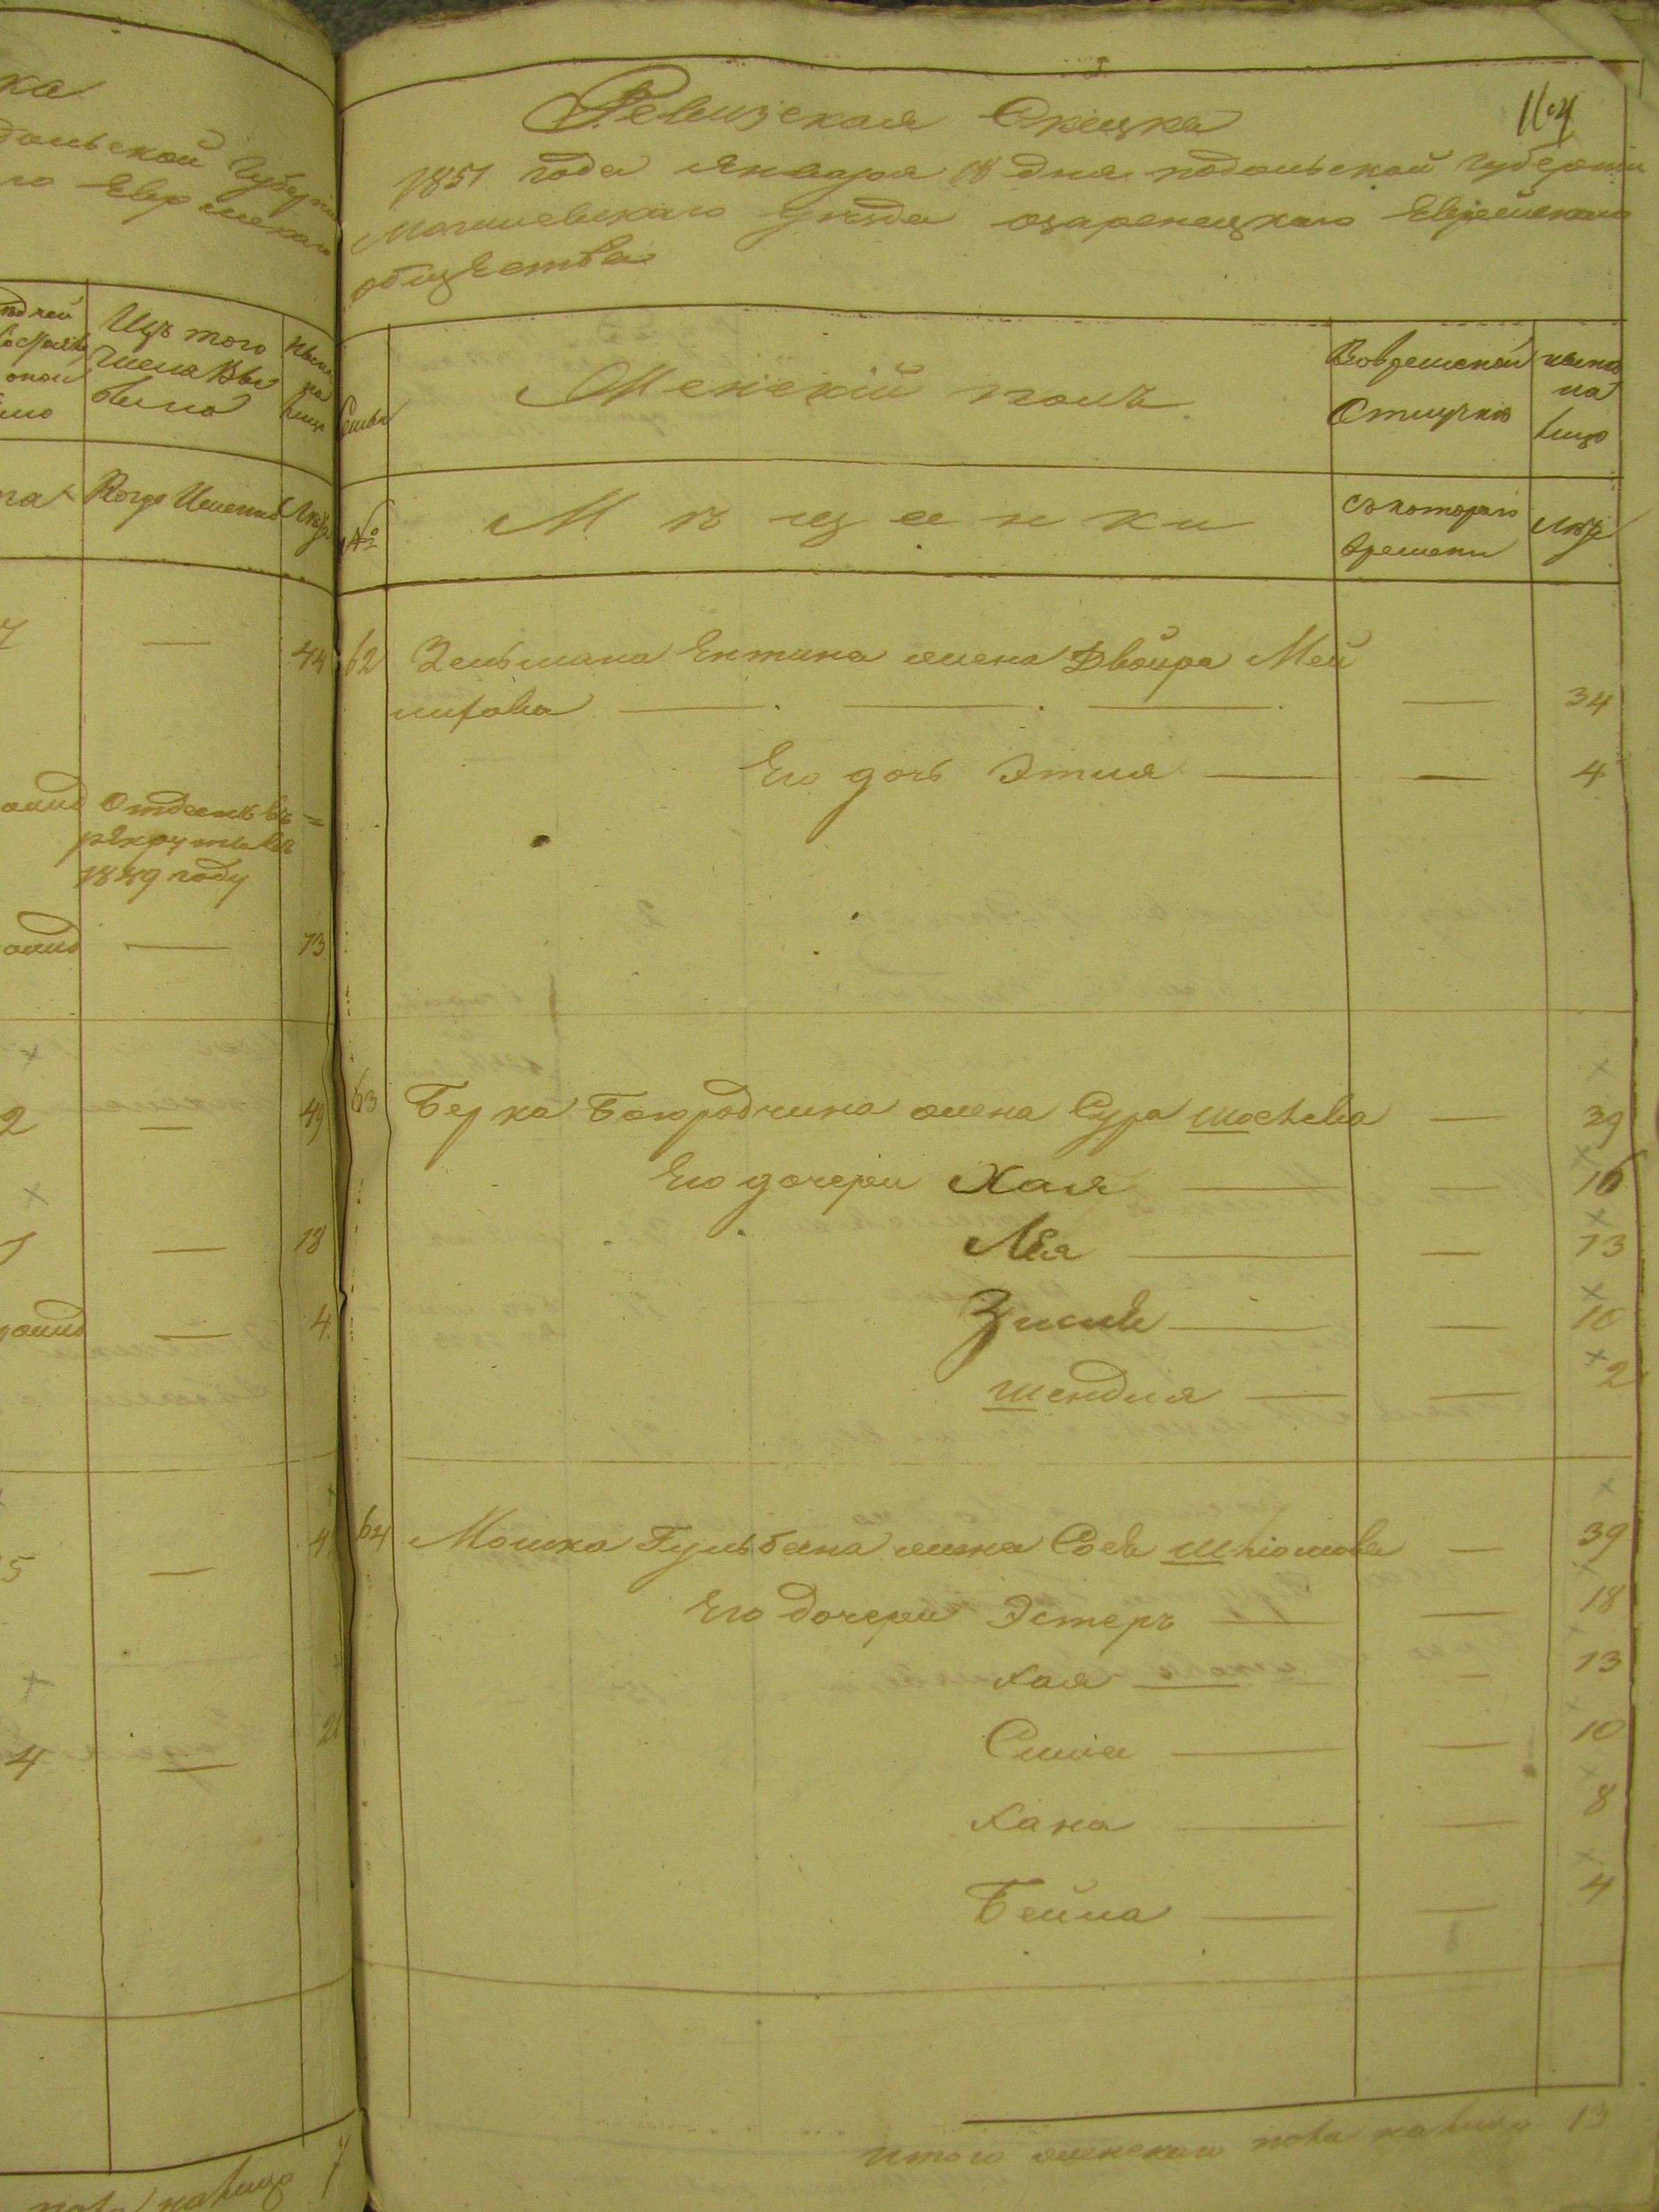 ка
дольской Губерніи
го Еврейскаго
Изъ того
числа Вы
было
ныне
на
лицо
Когда Именно
Лѣта
44
Отданъ въ
рекруты въ
1849 году
13
2
49
1
18
4
5
4
пола на лицо 7
Ревизская Сказка
1851 года января 18 дня подольской губерніи
Могилевскаго уѣзда озаренецкаго Еврейскаго
общества
Семьи
Женскій полъ
Вовременной
Отлучкѣ
ныне
на
лицо
№
Мѣщанки
съ котораго
времени
лѣта
62 Зельмана жена Двойра Мей
34
Его дочь Этля 4
63 Берка Богородчина жена Сура 39
Его дочери Хая 16
Лея 13
Зисля 10
Шендля 2
64 Мошка Гульбана жена Шліомова 39
Его дочери Эстеръ 18
Хая 13
Симa 10
Хана 8
Бейла 4
итого женскаго пола на лицо 13